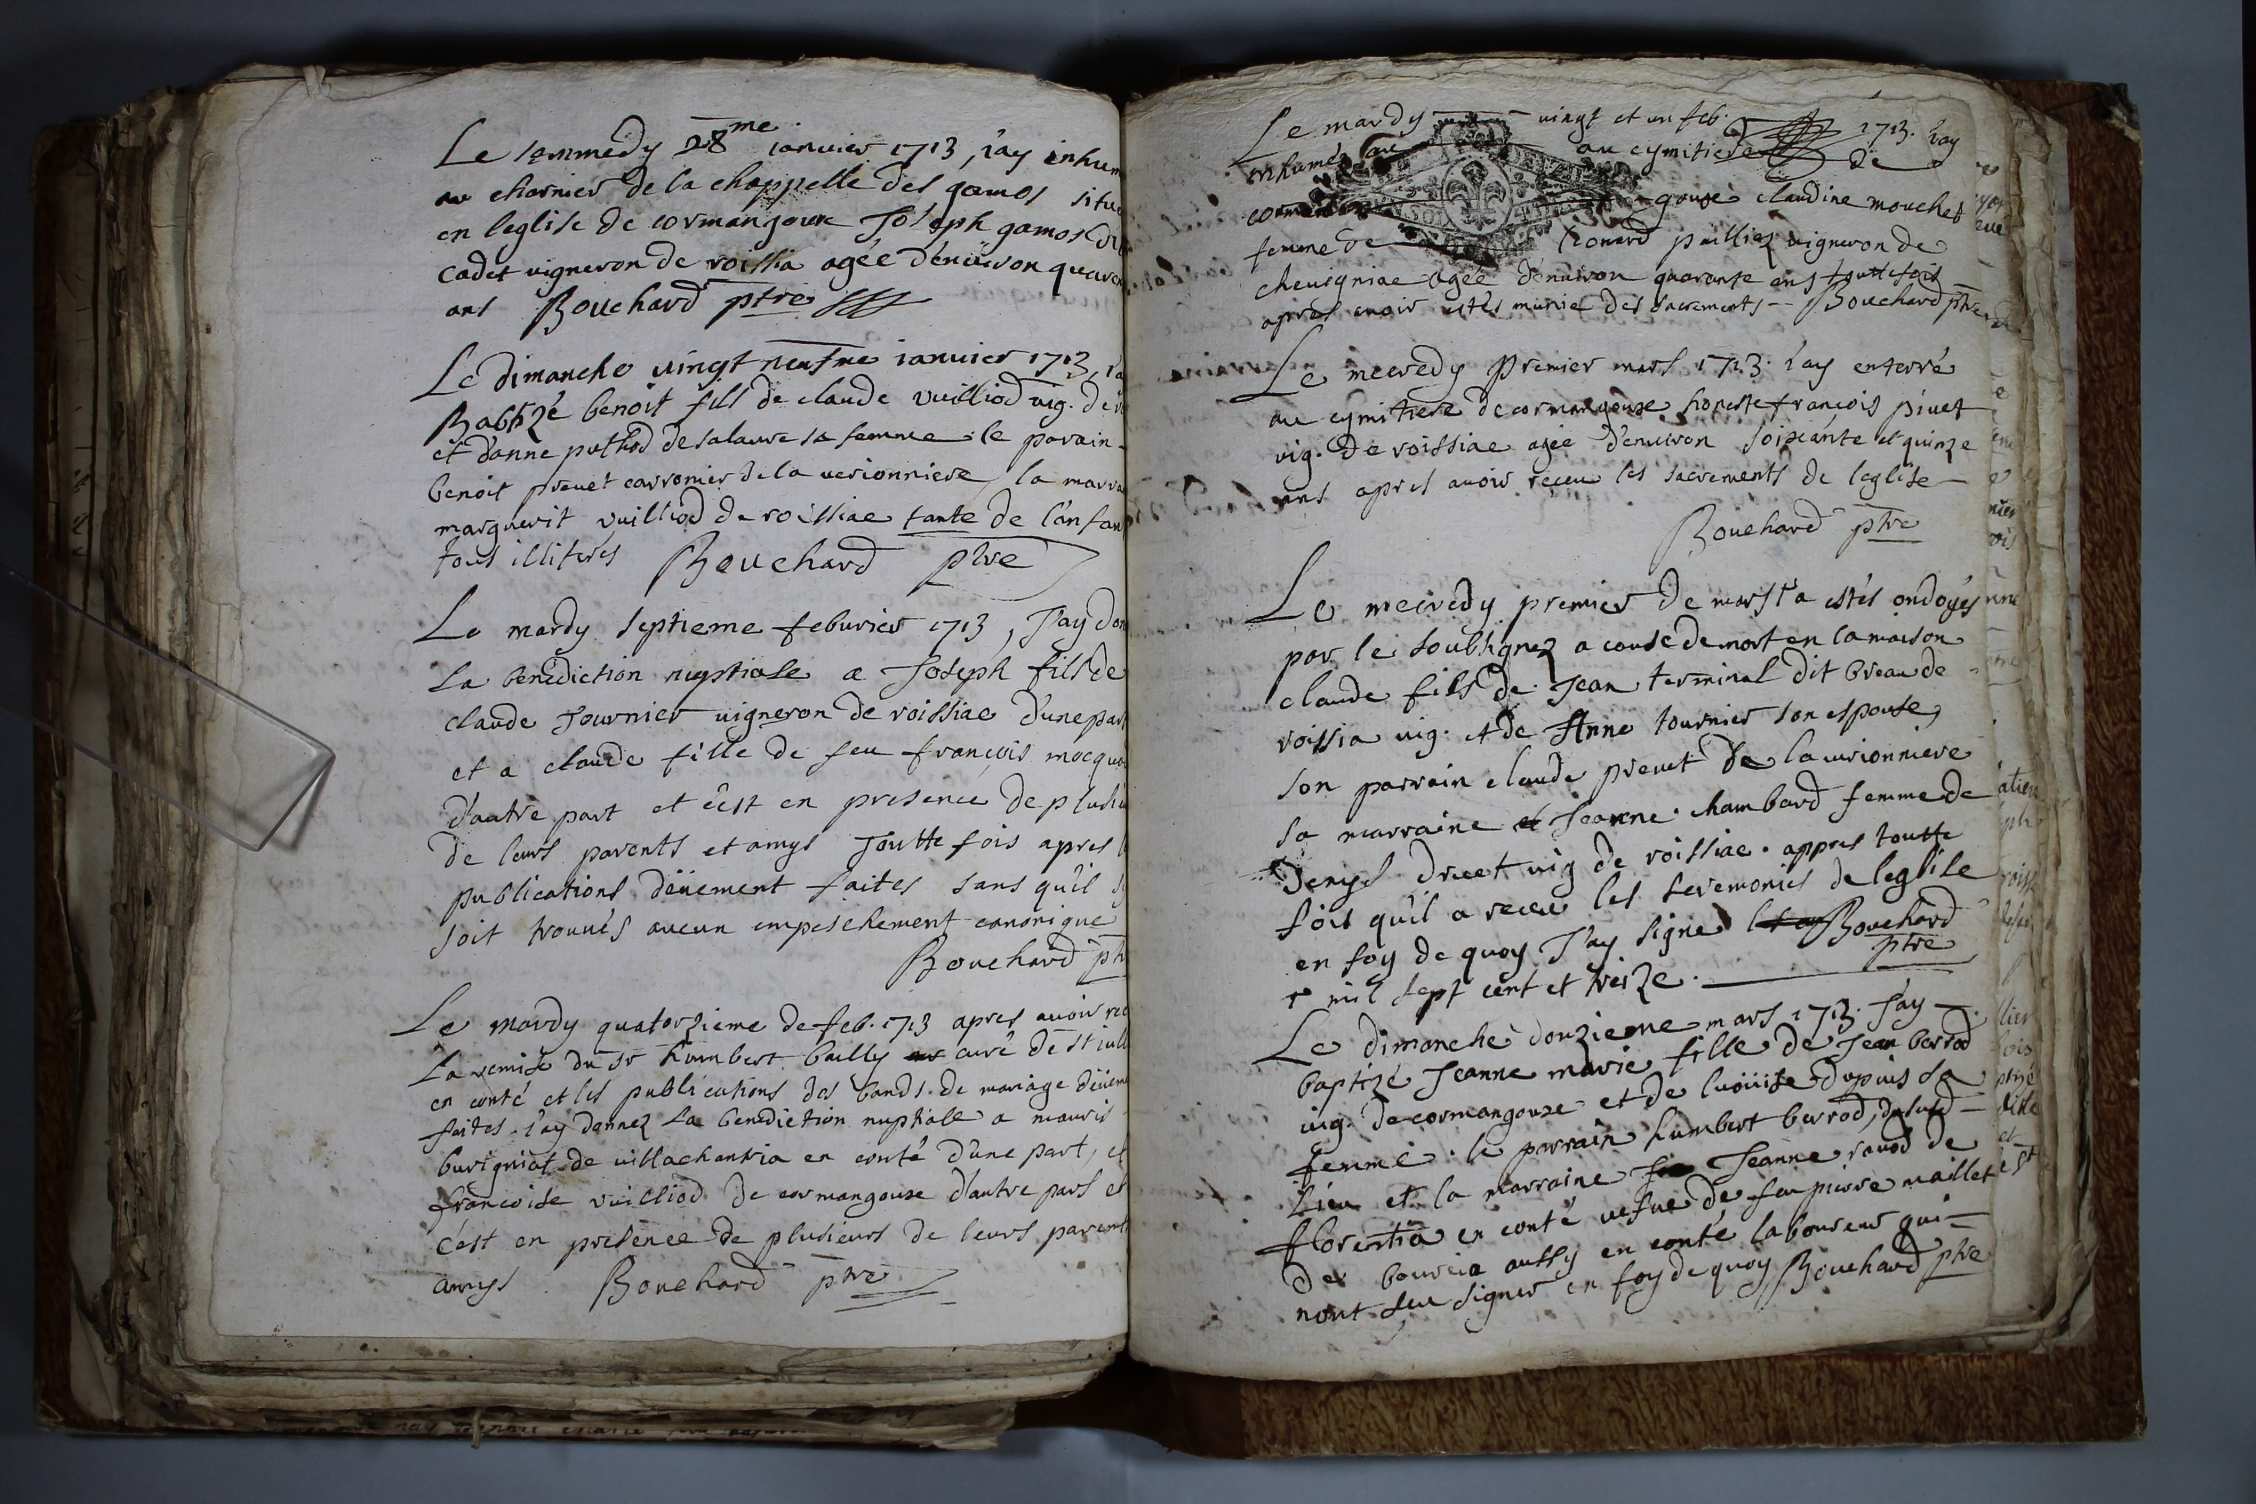 Le semmedy 28me ianvier 1713, i'ay inhum
au charnier de la chappelle des gamos situé
en leglise de cormangoux Joseph gamos dit
cadet vigneron de roissia agée d'enuiron quaran
ans Bouchard ptre
Le dimanche vingt neufme ianvier 1713, i'a
Babtizé benoit fils de claude vuilliod vig. de
et d'anne puthod de salavre sa femme le parain
benoit prevet carronier de la verionniere la marra
marguerit vuilliod de roissiae tante de l'anfan
tous illiterés Bouchard ptre
Le mardy septieme feburier 1713, J'ay don
La benediction nuptiale a Joseph fils de
claude Tournier vigneron de roissiae d'une par
et a claude fille de feu françois mocqu
d'autre part et c'est en presence de plusi
de leurs parents et amys Toutte fois apres l
publications dëüement faites sans qu'il s
soit trouués aucun empeschement canonique
Bouchard ptr
Le mardy quatorzieme de feb. 1713 apres auoir rec
La remise du Sr humbert bailly curé de St iull
en conté et les publications des bands de mariage dëüem
faites. i'ay donnez La benediction nuptiale a mauris
burigniot de villachantria en conté d'une part, et
françoise vuilliod de cormangoux d'autre pars et
c'est en presence de plusieurs de leurs parent
amys Bouchard ptre
Le mardy vingt et un feb. 1713. i'ay
inhumé au cymitiere de
corman gouxe claudine mouchet
femme de Leonard puilliez vigneron de
cheusigniae agée d'enuiron quarante ans touttefois
apres auoir estés munie des sacrements Bouchard ptre
Le mecredy Premier mars 1713. i'ay enterré
au cymitiere de cormangouxe honeste françois pivet
vig. de roissiae agée d'enuiron soixante et quinze
ans apres auoir receu les sacrements de leglise
Bouchard ptre
Le mecredy premier de mars a estés ondoyés
par le soubsignez a cause de mort en la maison
claude fils de Jean terminal dit breau de
roissia vig. et de Anne tournier son espouse,
son parrain claude prevet de la verionniere
sa marraine Jeanne chambard femme de
denys drevet vig de roissiae. appres toutte
fois qu'il a receu les seremonies de leglise
en foy de quoy J'ay signe Bouchard
ptre
mil sept cent et treize.
Le dimanche douzieme mars 1713. J'ay
baptizé Jeanne marie fille de Jean berrod
vig. de cormangouxe et de luöüise dupuis sa
femme. le parrain humbert berrod, dususd
lieu et la marraine Jeanne ravod de
florentia en conté vefue de feu pierre maillet
der bourcia aussy en conté laboureur qui
n'ont seu signer en foy de quoy Bouchard ptre